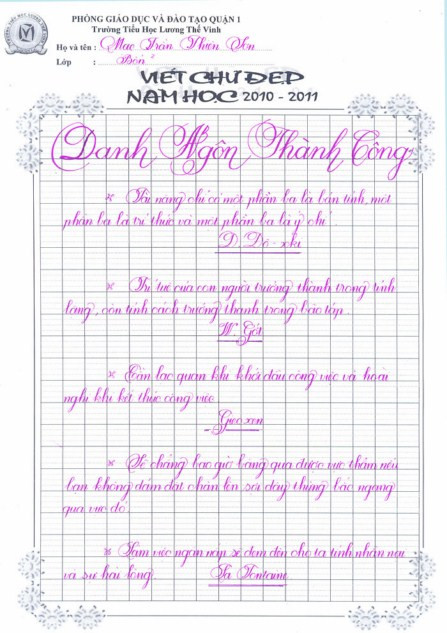 PHÒNG GIÁO DỤC VÀ ĐÀO TẠO QUẬN 1
Trường Tiểu Học Lương Thế Vinh
Họ và tên : Mac Trần Thiên Sơn
Lớp : Bốn²
VIẾT CHỮ ĐẸP
NĂM HỌC 2010 - 2011
Danh Ngôn Thành Công
* Tài năng chỉ có một phần ba là bản tính, một
phần ba là trí thức và một phần ba là ý chí.
Đ. Đô-xki
* Trí tuệ của con người trưởng thành trong tĩnh
lặng, còn tính cách trưởng thành trong bão táp.
W. Gớt
* Cần lạc quan khi khởi đầu công việc và hoài
nghi khi kết thúc công việc.
* Sẽ chẳng bao giờ băng qua được vực thẳm nếu
bạn không dám đặt chân lên sợi dây thừng bắc ngang
qua vực đó.
* Làm việc ngăn nắp sẽ đem đến cho ta tính nhẫn nại
và sự hài lòng.
La Fontaine